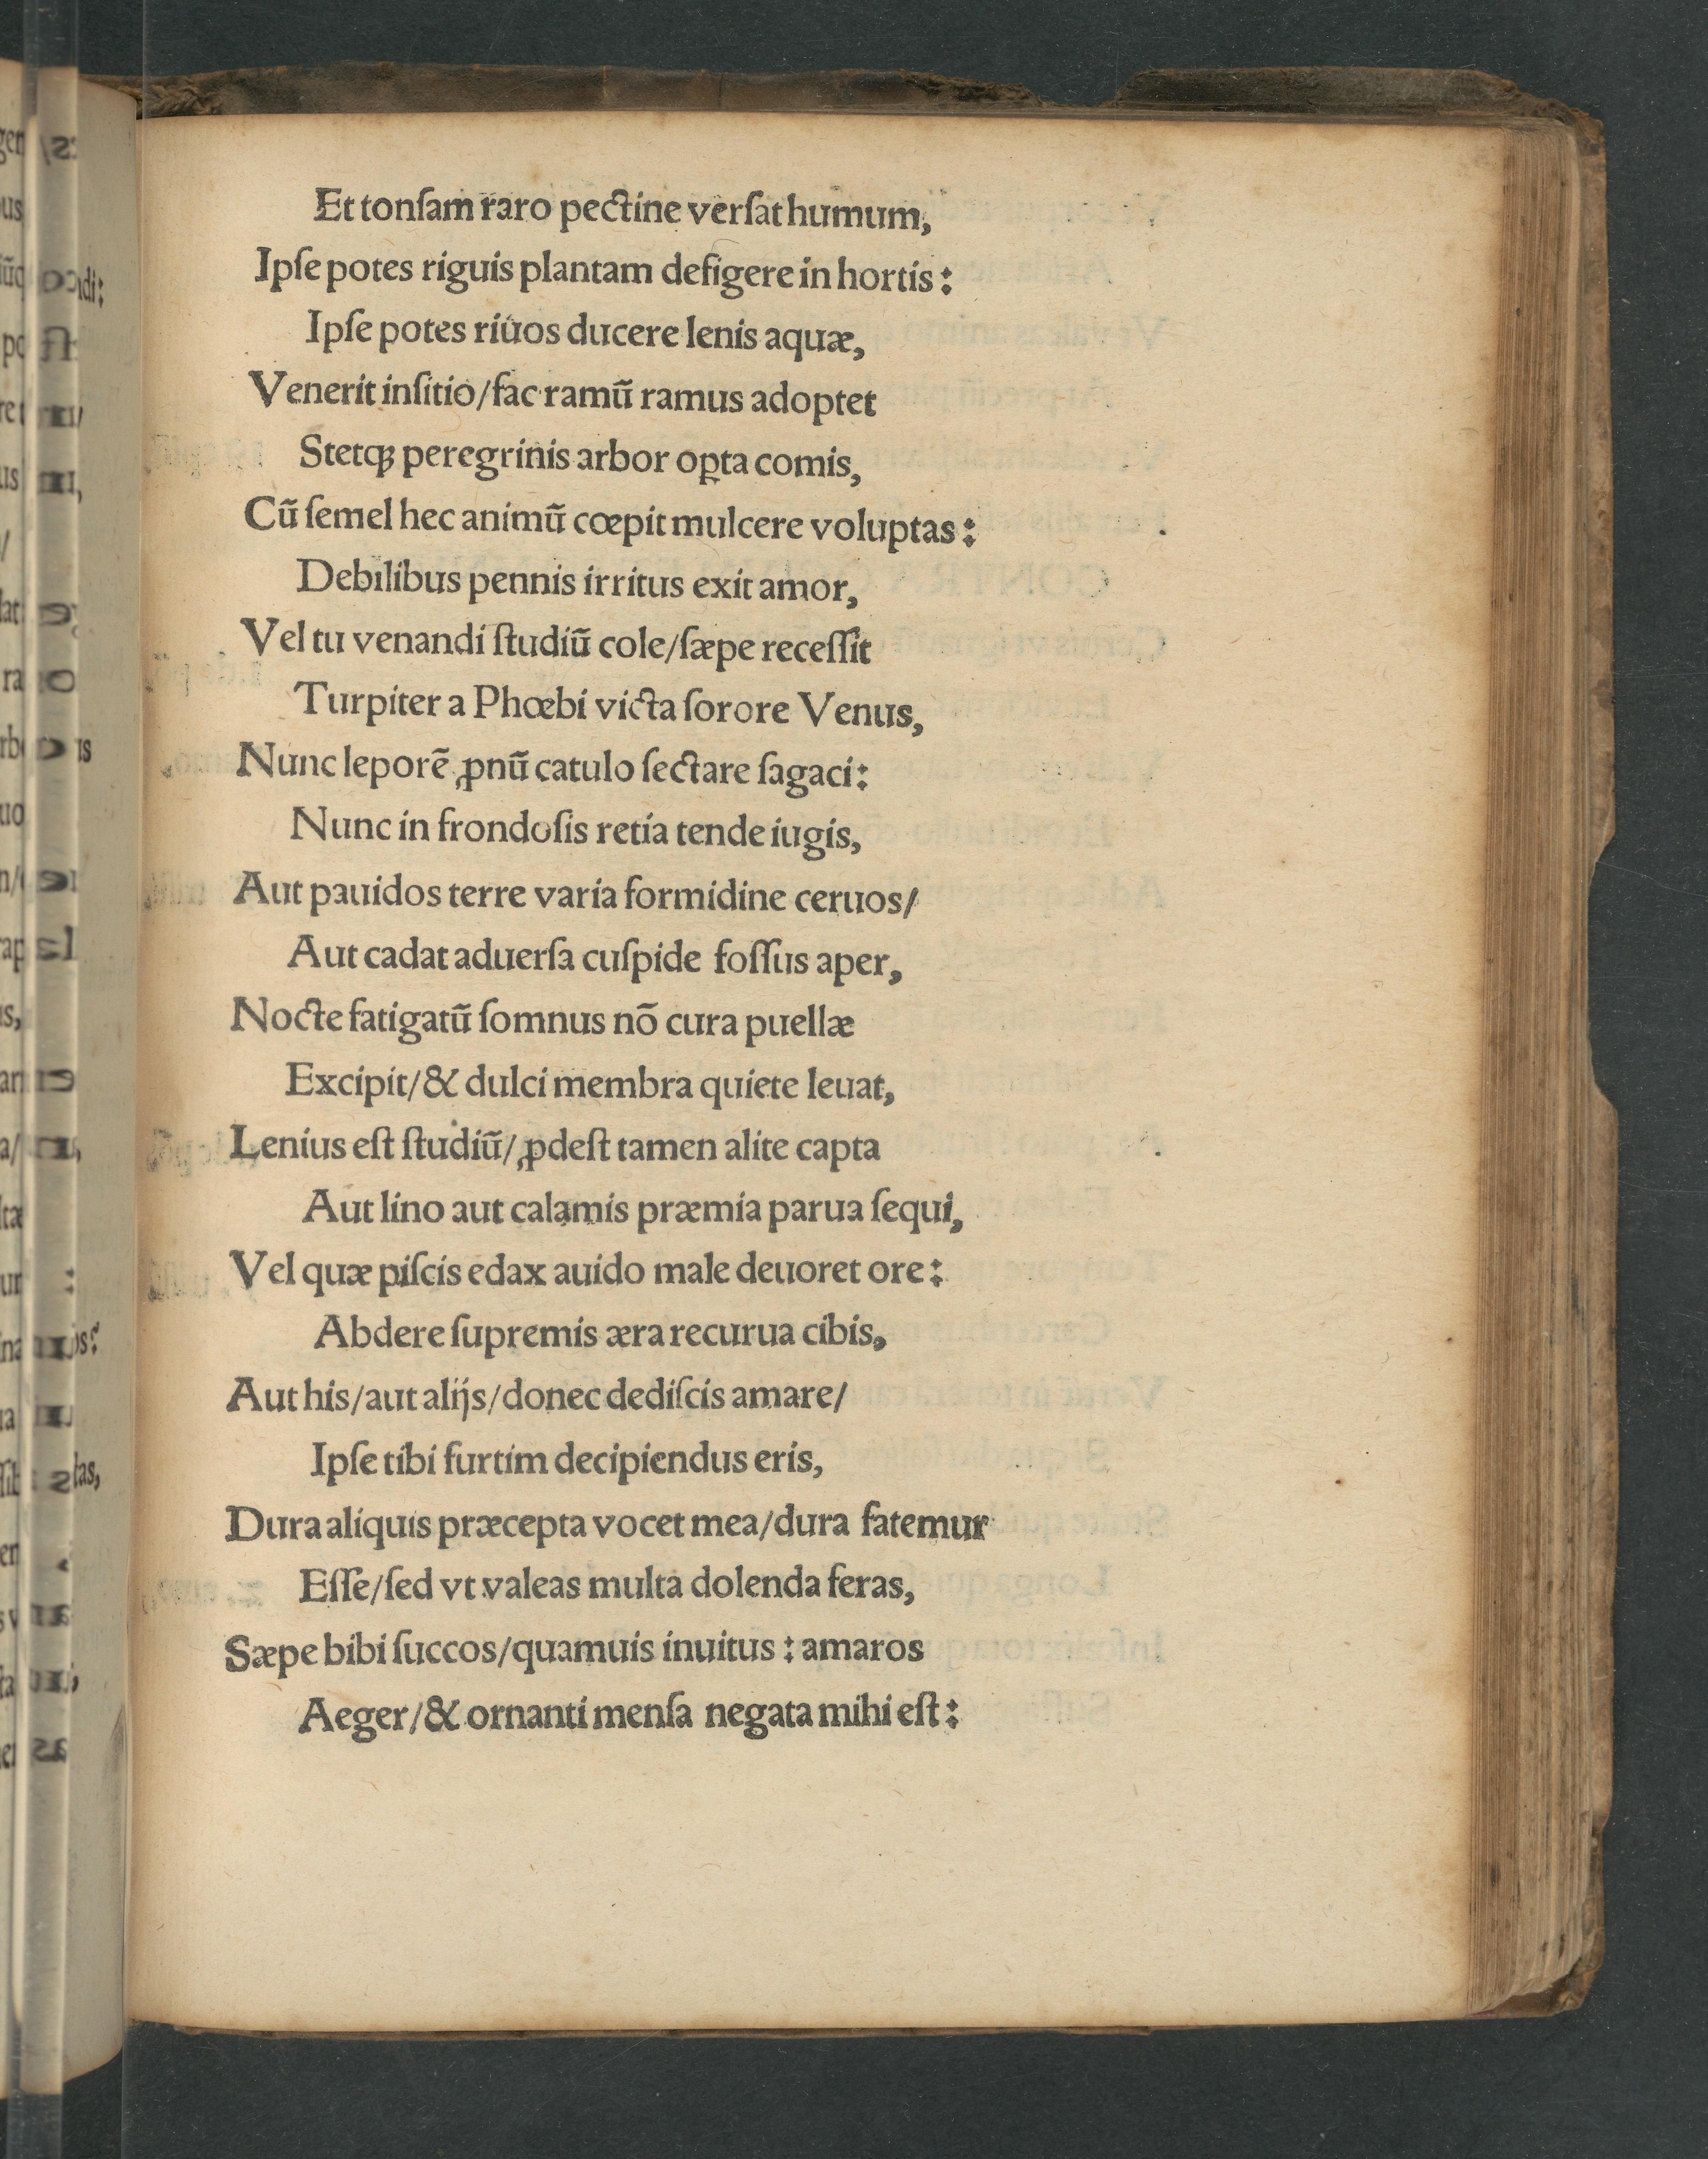 Et tonſam raro pectine verſat humum,
Ipſe potes riguis plantam defigere in hortis:
Ipſe potes riuos ducere lenis aquæ,
Venerit inſitio/fac ramū ramus adoptet
Stetqꝫ peregrinis arbor oꝑta comis,
Cū ſemel hec animū cœpit mulcere voluptas:
Debilibus pennis irritus exit amor,
Vel tu venandi ſtudiū cole/ſæpe receſſit
Turpiter a Phœbi victa ſorore Venus,
Nunc leporē ꝓnū catulo ſectare ſagaci:
Nunc in frondoſis retia tende iugis,
Aut pauidos terre varia formidine ceruos/
Aut cadat aduerſa cuſpide foſſus aper,
Nocte fatigatū ſomnus nō cura puellæ
Excipit/& dulci membra quiete leuat,
Lenius eſt ſtudiū/ꝓdeſt tamen alite capta
Aut lino aut calamis præmia parua ſequi,
Vel quæ piſcis edax auido male deuoret ore:
Abdere ſupremis æra recurua cibis,
Aut his/aut alijs/donec dediſcis amare/
Ipſe tibi furtim decipiendus eris,
Dura aliquis præcepta vocet mea/dura fatemur
Eſſe/ſed vt valeas multa dolenda feras,
Sæpe bibi ſuccos/quamuis inuitus: amaros
Aeger/& ornanti menſa negata mihi eſt: